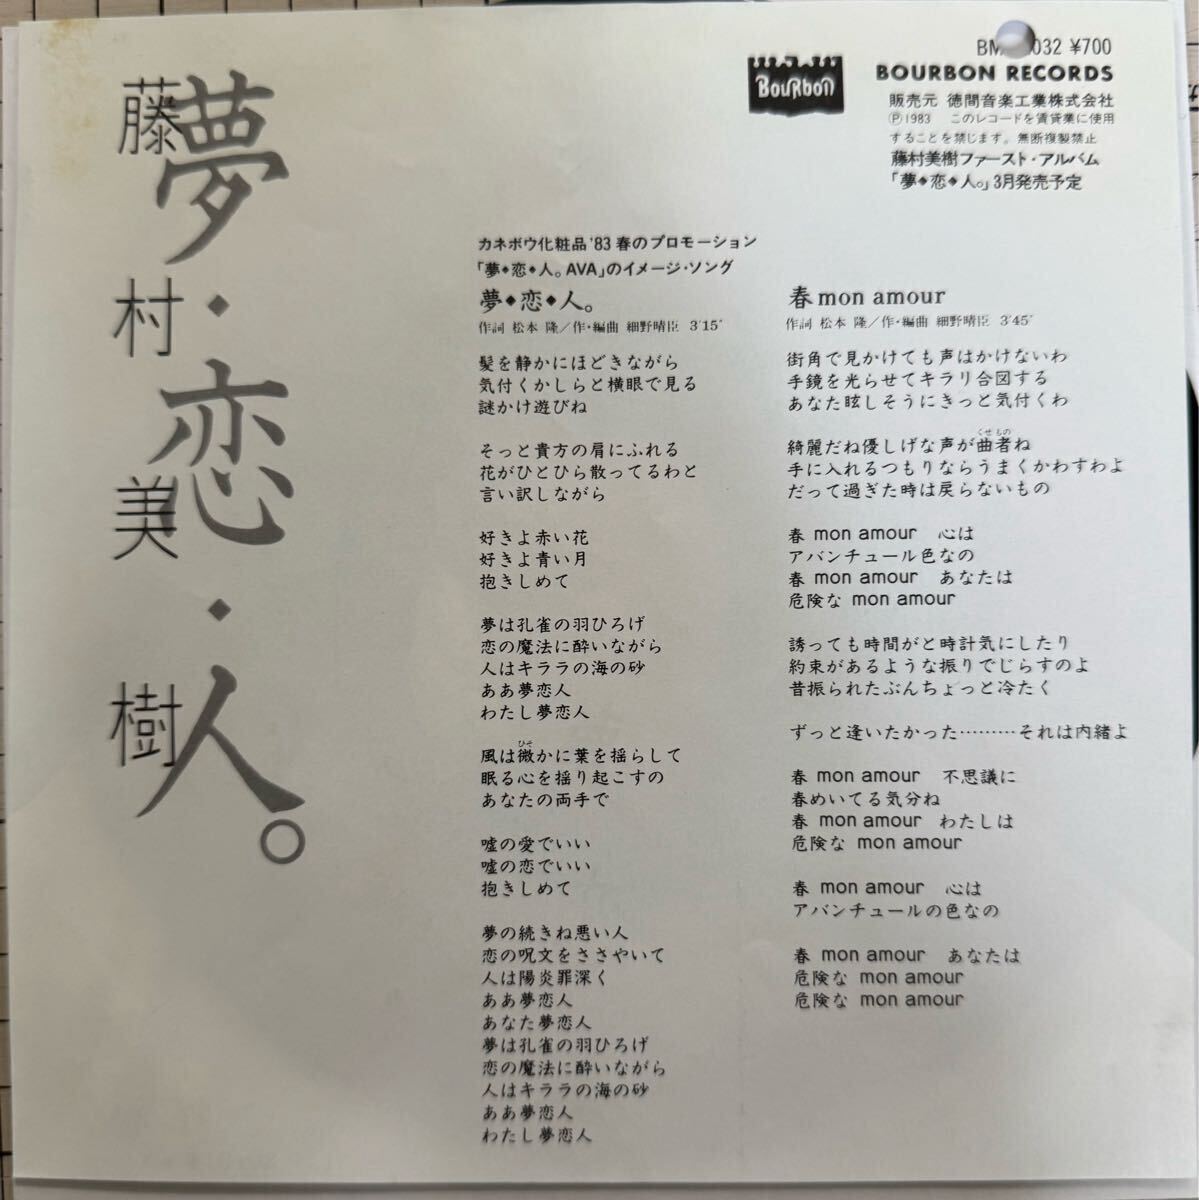 夢・恋・人。
藤村美樹
Bourbon
032 ¥700
BOURBON RECORDS
販売元 徳間音楽工業株式会社
Ⓟ1983 このレコードを賃貸業に使用
することを禁じます。無断複製禁止
藤村美樹ファースト・アルバム
「夢◆恋◆人。」3月発売予定
カネボウ化粧品'83春のプロモーション
「夢◆恋◆人。AVA」のイメージ・ソング
夢◆恋◆人。
作詞 松本 隆／作・編曲 細野晴臣 3'15"
髪を静かにほどきながら
気付くかしらと横眼で見る
謎かけ遊びね
そっと貴方の肩にふれる
花がひとひら散ってるわと
言い訳しながら
好きよ赤い花
好きよ青い月
抱きしめて
夢は孔雀の羽ひろげ
恋の魔法に酔いながら
人はキララの海の砂
ああ夢恋人
わたし夢恋人
風は微かに葉を揺らして
ひそ
眠る心を揺り起こすの
あなたの両手で
嘘の愛でいい
嘘の恋でいい
抱きしめて
夢の続きね悪い人
恋の呪文をささやいて
人は陽炎罪深く
ああ夢恋人
あなた夢恋人
夢は孔雀の羽ひろげ
恋の魔法に酔いながら
人はキララの海の砂
ああ夢恋人
わたし夢恋人
春 mon amour
作詞 松本 隆／作・編曲 細野晴臣 3'45"
街角で見かけても声はかけないわ
手鏡を光らせてキラリ合図する
あなた眩しそうにきっと気付くわ
綺麗だね優しげな声が曲者ね
くせもの
手に入れるつもりならうまくかわすわよ
だって過ぎた時は戻らないもの
春 mon amour 心は
アバンチュール色なの
春 mon amour あなたは
危険な mon amour
誘っても時間がと時計気にしたり
約束があるような振りでじらすのよ
昔振られたぶんちょっと冷たく
ずっと逢いたかった………それは内緒よ
春 mon amour 不思議に
春めいてる気分ね
春 mon amour わたしは
危険な mon amour
春 mon amour 心は
アバンチュールの色なの
春 mon amour あなたは
危険な mon amour
危険な mon amour